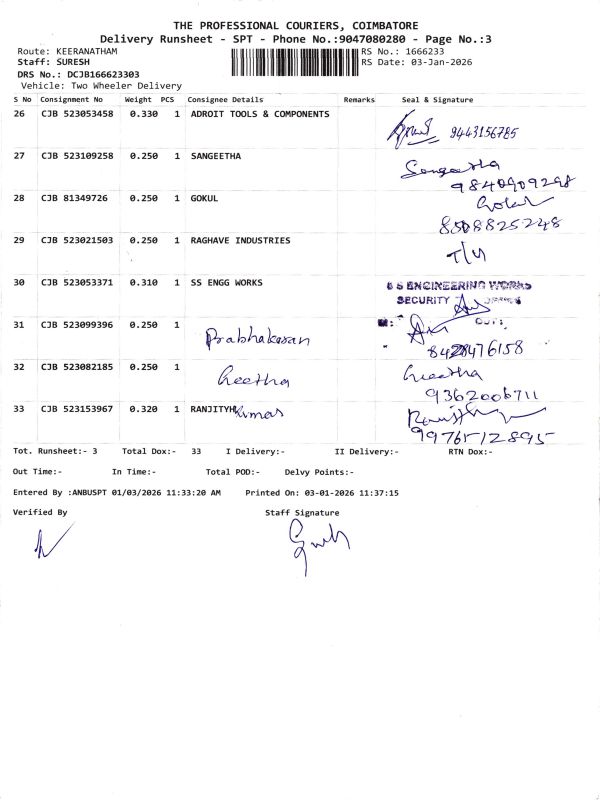 THE PROFESSIONAL COURIERS, COIMBATORE
Delivery Runsheet - SPT - Phone No.:9047080280 - Page No.:3
Route: KEERANATHAM RS No.: 1666233
Staff: SURESH RS Date: 03-Jan-2026
DRS No.: DCJB166623303
Vehicle: Two Wheeler Delivery
S No Consignment No Weight PCS Consignee Details Remarks Seal & Signature
26 CJB 523053458 0.330 1 ADROIT TOOLS & COMPONENTS 9443156785
27 CJB 523109258 0.250 1 SANGEETHA Sangeetha
9840909298
28 CJB 81349726 0.250 1 GOKUL Gokul
8508825248
29 CJB 523021503 0.250 1 RAGHAVE INDUSTRIES
30 CJB 523053371 0.310 1 SS ENGG WORKS S S ENGINEERING WORKS
SECURITY
31 CJB 523099396 0.250 1 Prabhakaran
8428476158
32 CJB 523082185 0.250 1 Geetha Geetha
9362006711
33 CJB 523153967 0.320 1 RANJITYH Kumar
9976512895
Tot. Runsheet:- 3 Total Dox:- 33 I Delivery:- II Delivery:- RTN Dox:-
Out Time:- In Time:- Total POD:- Delvy Points:-
Entered By :ANBUSPT 01/03/2026 11:33:20 AM Printed On: 03-01-2026 11:37:15
Verified By Staff Signature